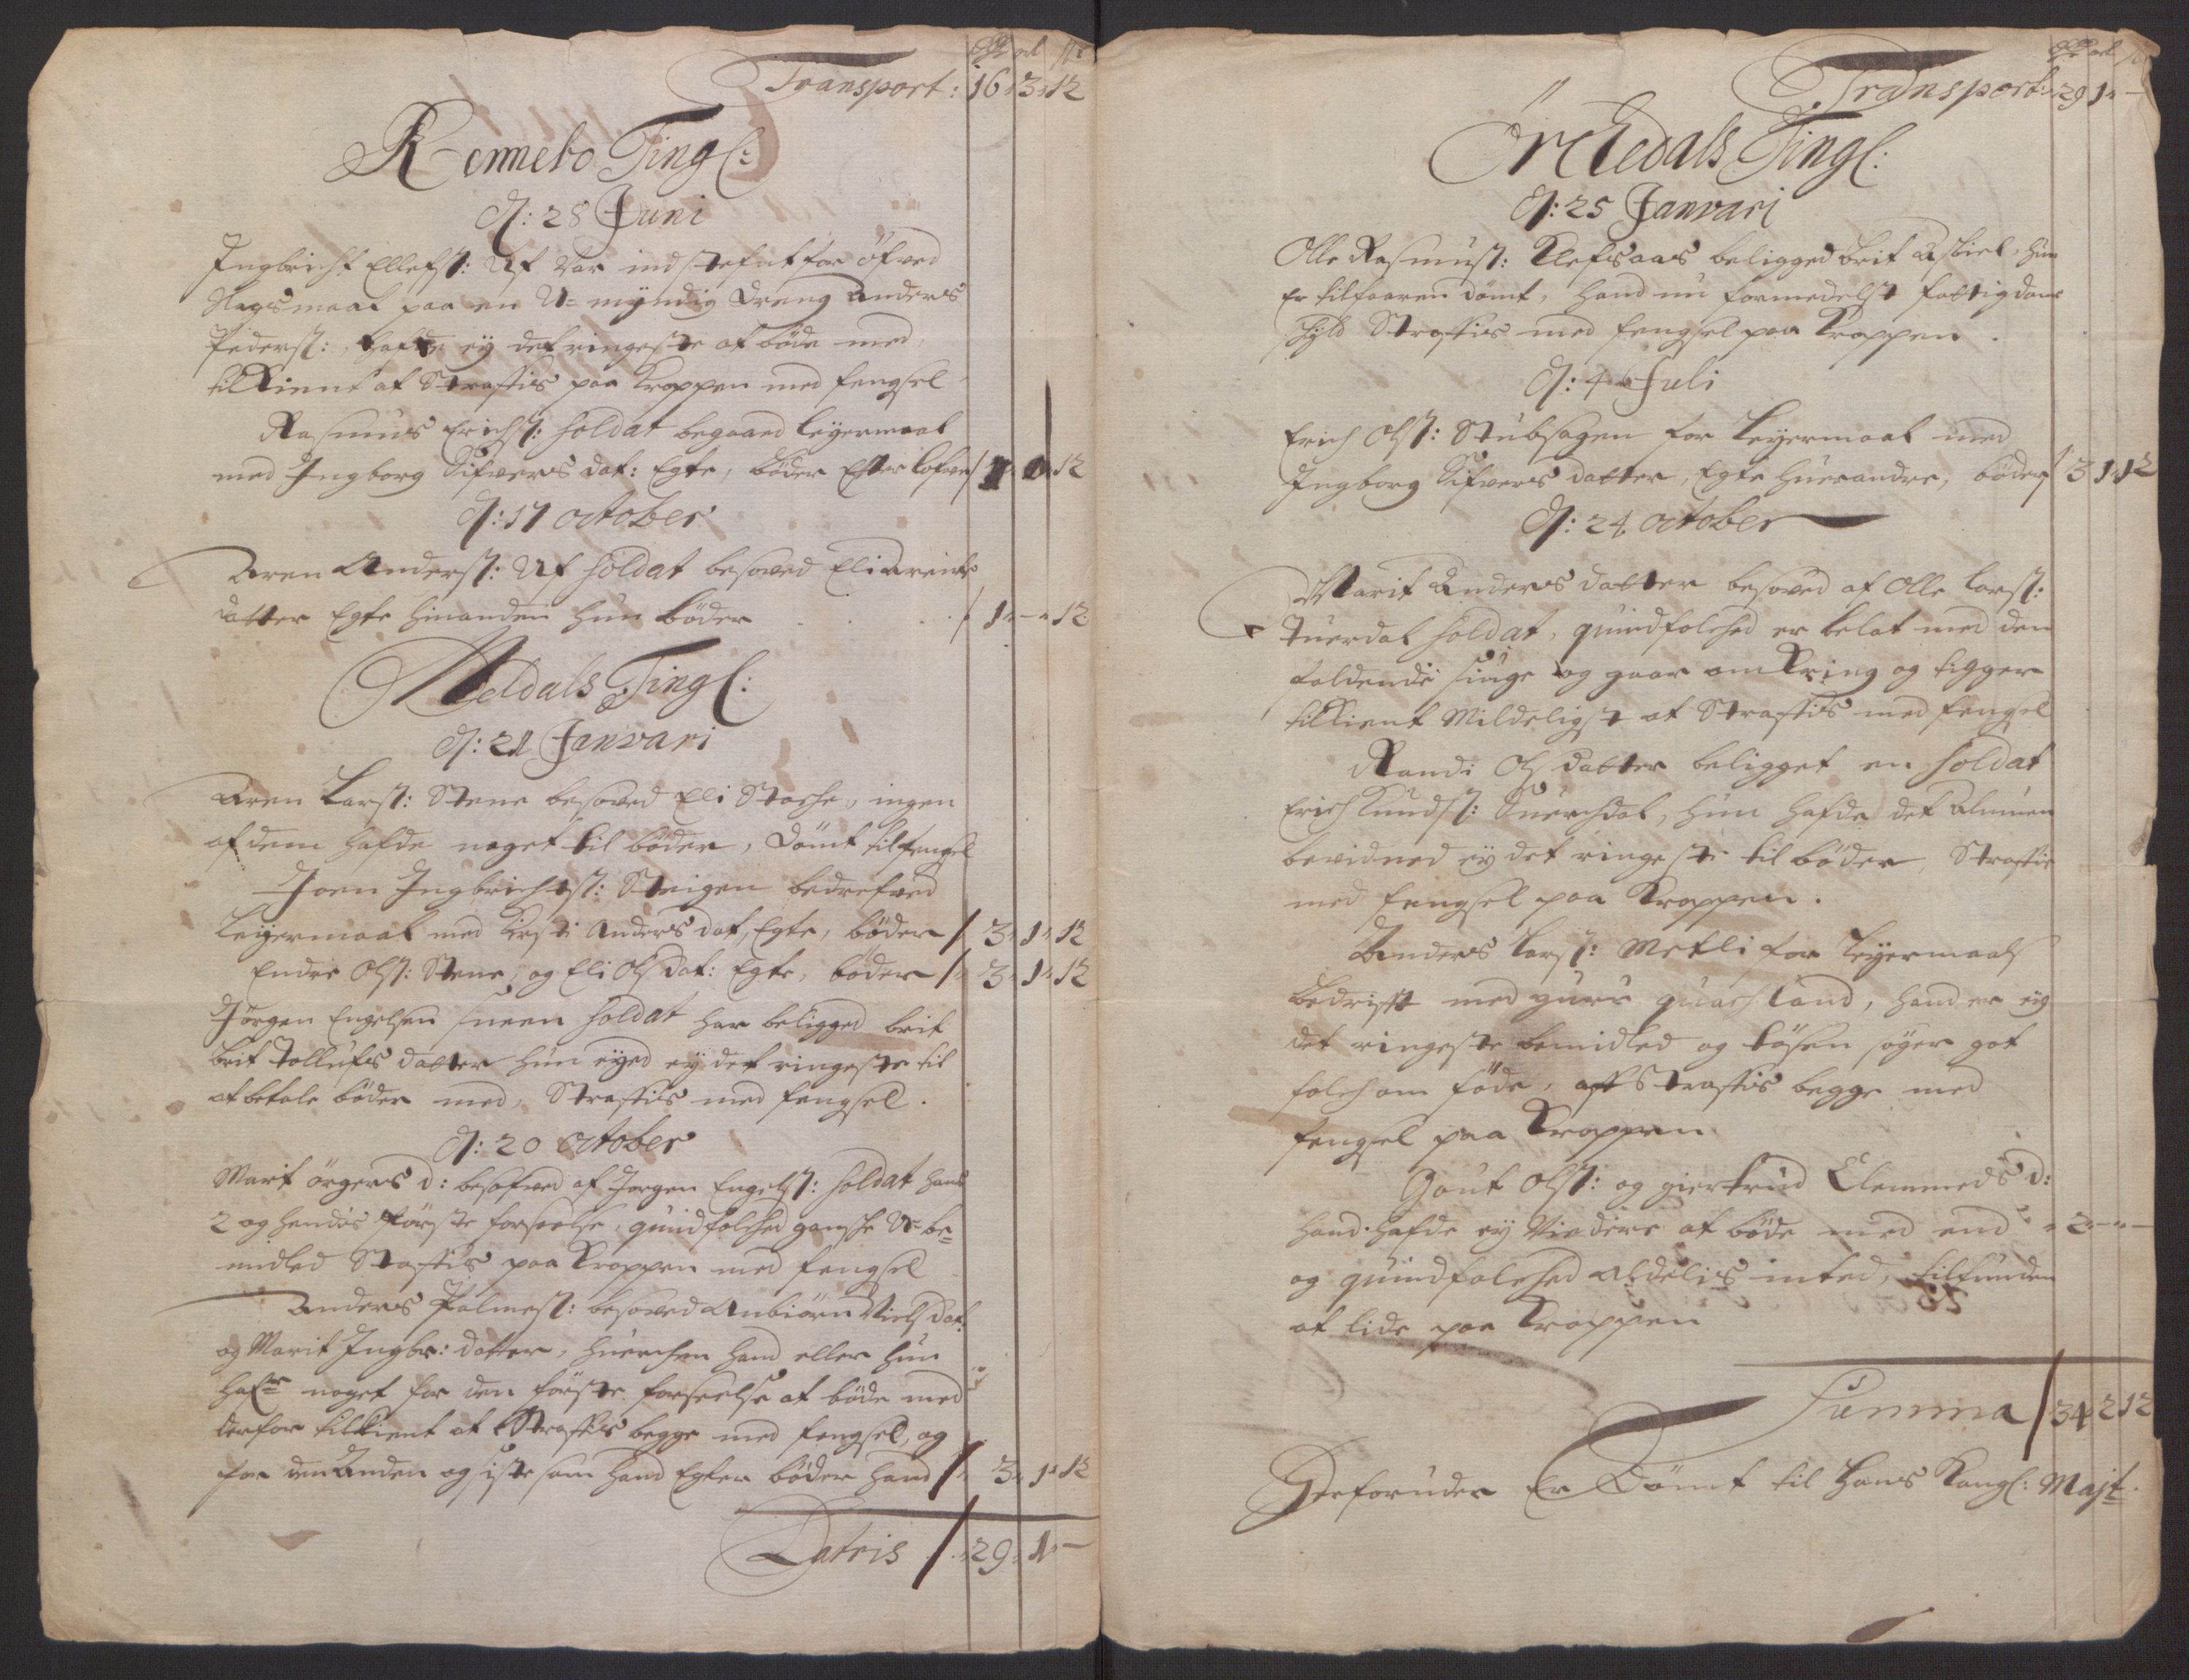 Rdr ort ß
Transport: 16 " 3 " 12
Rennebo Tingl:
D: 28 Juni
Ingbricht Ellefs: Uf var indstefnt for öfved
Slagsmaal paa en U=myndig Dreng Anders
Peders:, hafde ej det ringeste at böde med,
tilkient at Straffis paa Kroppen med fengsel
Rasmus Erichs: Soldat begaaed Leyermaal
med Ingborg Sifvers dat: Egte, böder Efter loven / 1 " 0 " 12
D: 17 October
Aren Anders: Uf Soldat besoved Eli Arents
datter Egte hinanden hun böder / 1 " - " 12
Meldals Tingl:
D: 21 Januari
Aren Lars: Stene besoved Eli Stoche, ingen
af dem hafde noget til böder, Dömt til fengsel
Joen Ingbrichts: Steigen bedrefved
Leyermaal med Kirsti Anders dat, Egte, böder / 3 " 1 " 12
Endre Ols: Stene, og Eli Ols dat: Egte, böder / 3 " 1 " 12
Jörgen Engelsen Soldat har beligged brit
brit Tollufs datter hun eyed ey det ringeste til
at betale böder med, Straffis med fengsel.
D: 20 October
Marit örgers d: besofved af Jörgen Engels: Soldat hans
2 og hendes förste forseelse, quindfolched gansche U=be=
midled Straffis paa Kroppen med fengsel
Anders Palmes: besoved Anbiörn Niels dat:
og Marit Ingbr: datter, huerchen hand eller hun
hafr noget for den förste forseelse at böde med
derfor tilkient at Straffis begge med fengsel, og
for den Anden og siste som hand Egter böder hand / 3 " 1 " 12
Lateris / 29 " 1 " -
Rdr ort ß
Transport: 29 " 1 " -
Örckedals Tingl:
D: 25 Januari
Olle Rasmus: Klefsaas beligged brit Asbiel, hun
Er tilfaaren dömt, hand nu formedelst fattigdoms
skyld Straffis med fengsel paa Kroppen.
D: 4 Juli
Erich Ols: Stubsagen for Leyermaal med
Ingborg Sifvers datter, Egte huerandre, böder / 3 " 1 " 12
D: 24 October
Marit Anders datter besoved af Olle Lars:
Tuerdal Soldat, quindfolched er belat med den
faldende siuge og gaar omkring og tigger
tilkient Mildeligst at Straffis med fengsel
Randi Ols datter beligget en Soldat
Erich Knuds: Suorchdal, hun hafde det Almuen
bevidned ey det ringeste til böder, Straffis
med fengsel paa Kroppen.
Anders Lars: Metli for Leyermaal
bedrifft med guru land, hand er ej
det ringeste bemidled og tösen söger got
folch om föde, at Straffis begge med
fengsel paa Kroppen
Gout Ols: og giertrud Clemmeds d:
hand hafde ey Viedere at böde med end " 2 " - " -
og quindfolched Aldelis inted, tilfunden
at lide paa Kroppen
Summa / 34 " 2 " 12
Herforuden Er Dömt til Hans Kongl: Majt